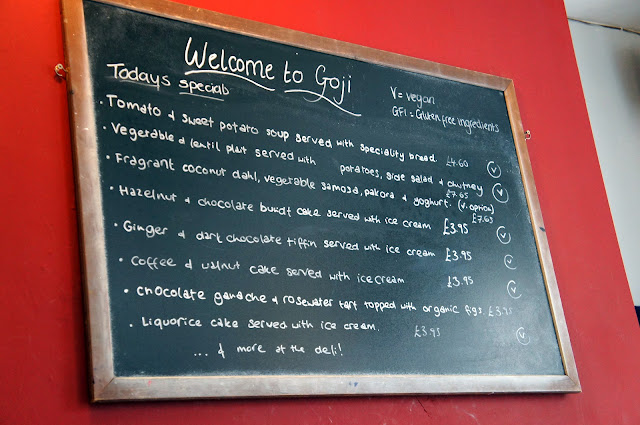 Welcome to Goji
Todays specials
V = vegan
GFI = Gluten free ingredients
• Tomato & sweet potato soup served with speciality bread £4.60 V
• Vegetable & lentil plait served with potatoes, side salad & chutney £7.65 V
• Fragrant coconut dahl, vegetable samosa, pakora & yoghurt. (v. option) £7.65
• Hazelnut & chocolate bundt cake served with ice cream £3.95 V
• Ginger & dark chocolate tiffin served with ice cream £3.95 V
• Coffee & walnut cake served with ice cream £3.95 V
• Chocolate ganache & rosewater tart topped with organic figs £3.95
• Liquorice cake served with ice cream. £3.95 V
... & more at the deli!